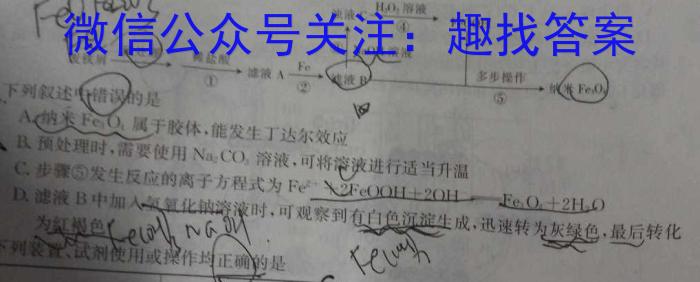 微信公众号关注：趣找答案
滤液C H₂O₂溶液
④
稀盐酸 滤液 A Fe 滤液 B 多步操作 纳米 Fe₃O₄
① ② ⑤
下列叙述中错误的是
A. 纳米 Fe₃O₄ 属于胶体，能发生丁达尔效应
B. 预处理时，需要使用 Na₂CO₃ 溶液，可将溶液进行适当升温
C. 步骤⑤发生反应的离子方程式为 Fe²⁺+2FeOOH+2OH⁻ Fe₃O₄+2H₂O
D. 滤液 B 中加入氢氧化钠溶液时，可观察到有白色沉淀生成，迅速转为灰绿色，最后转化
为红褐色 NaOH
下列装置、试剂使用或操作均正确的是